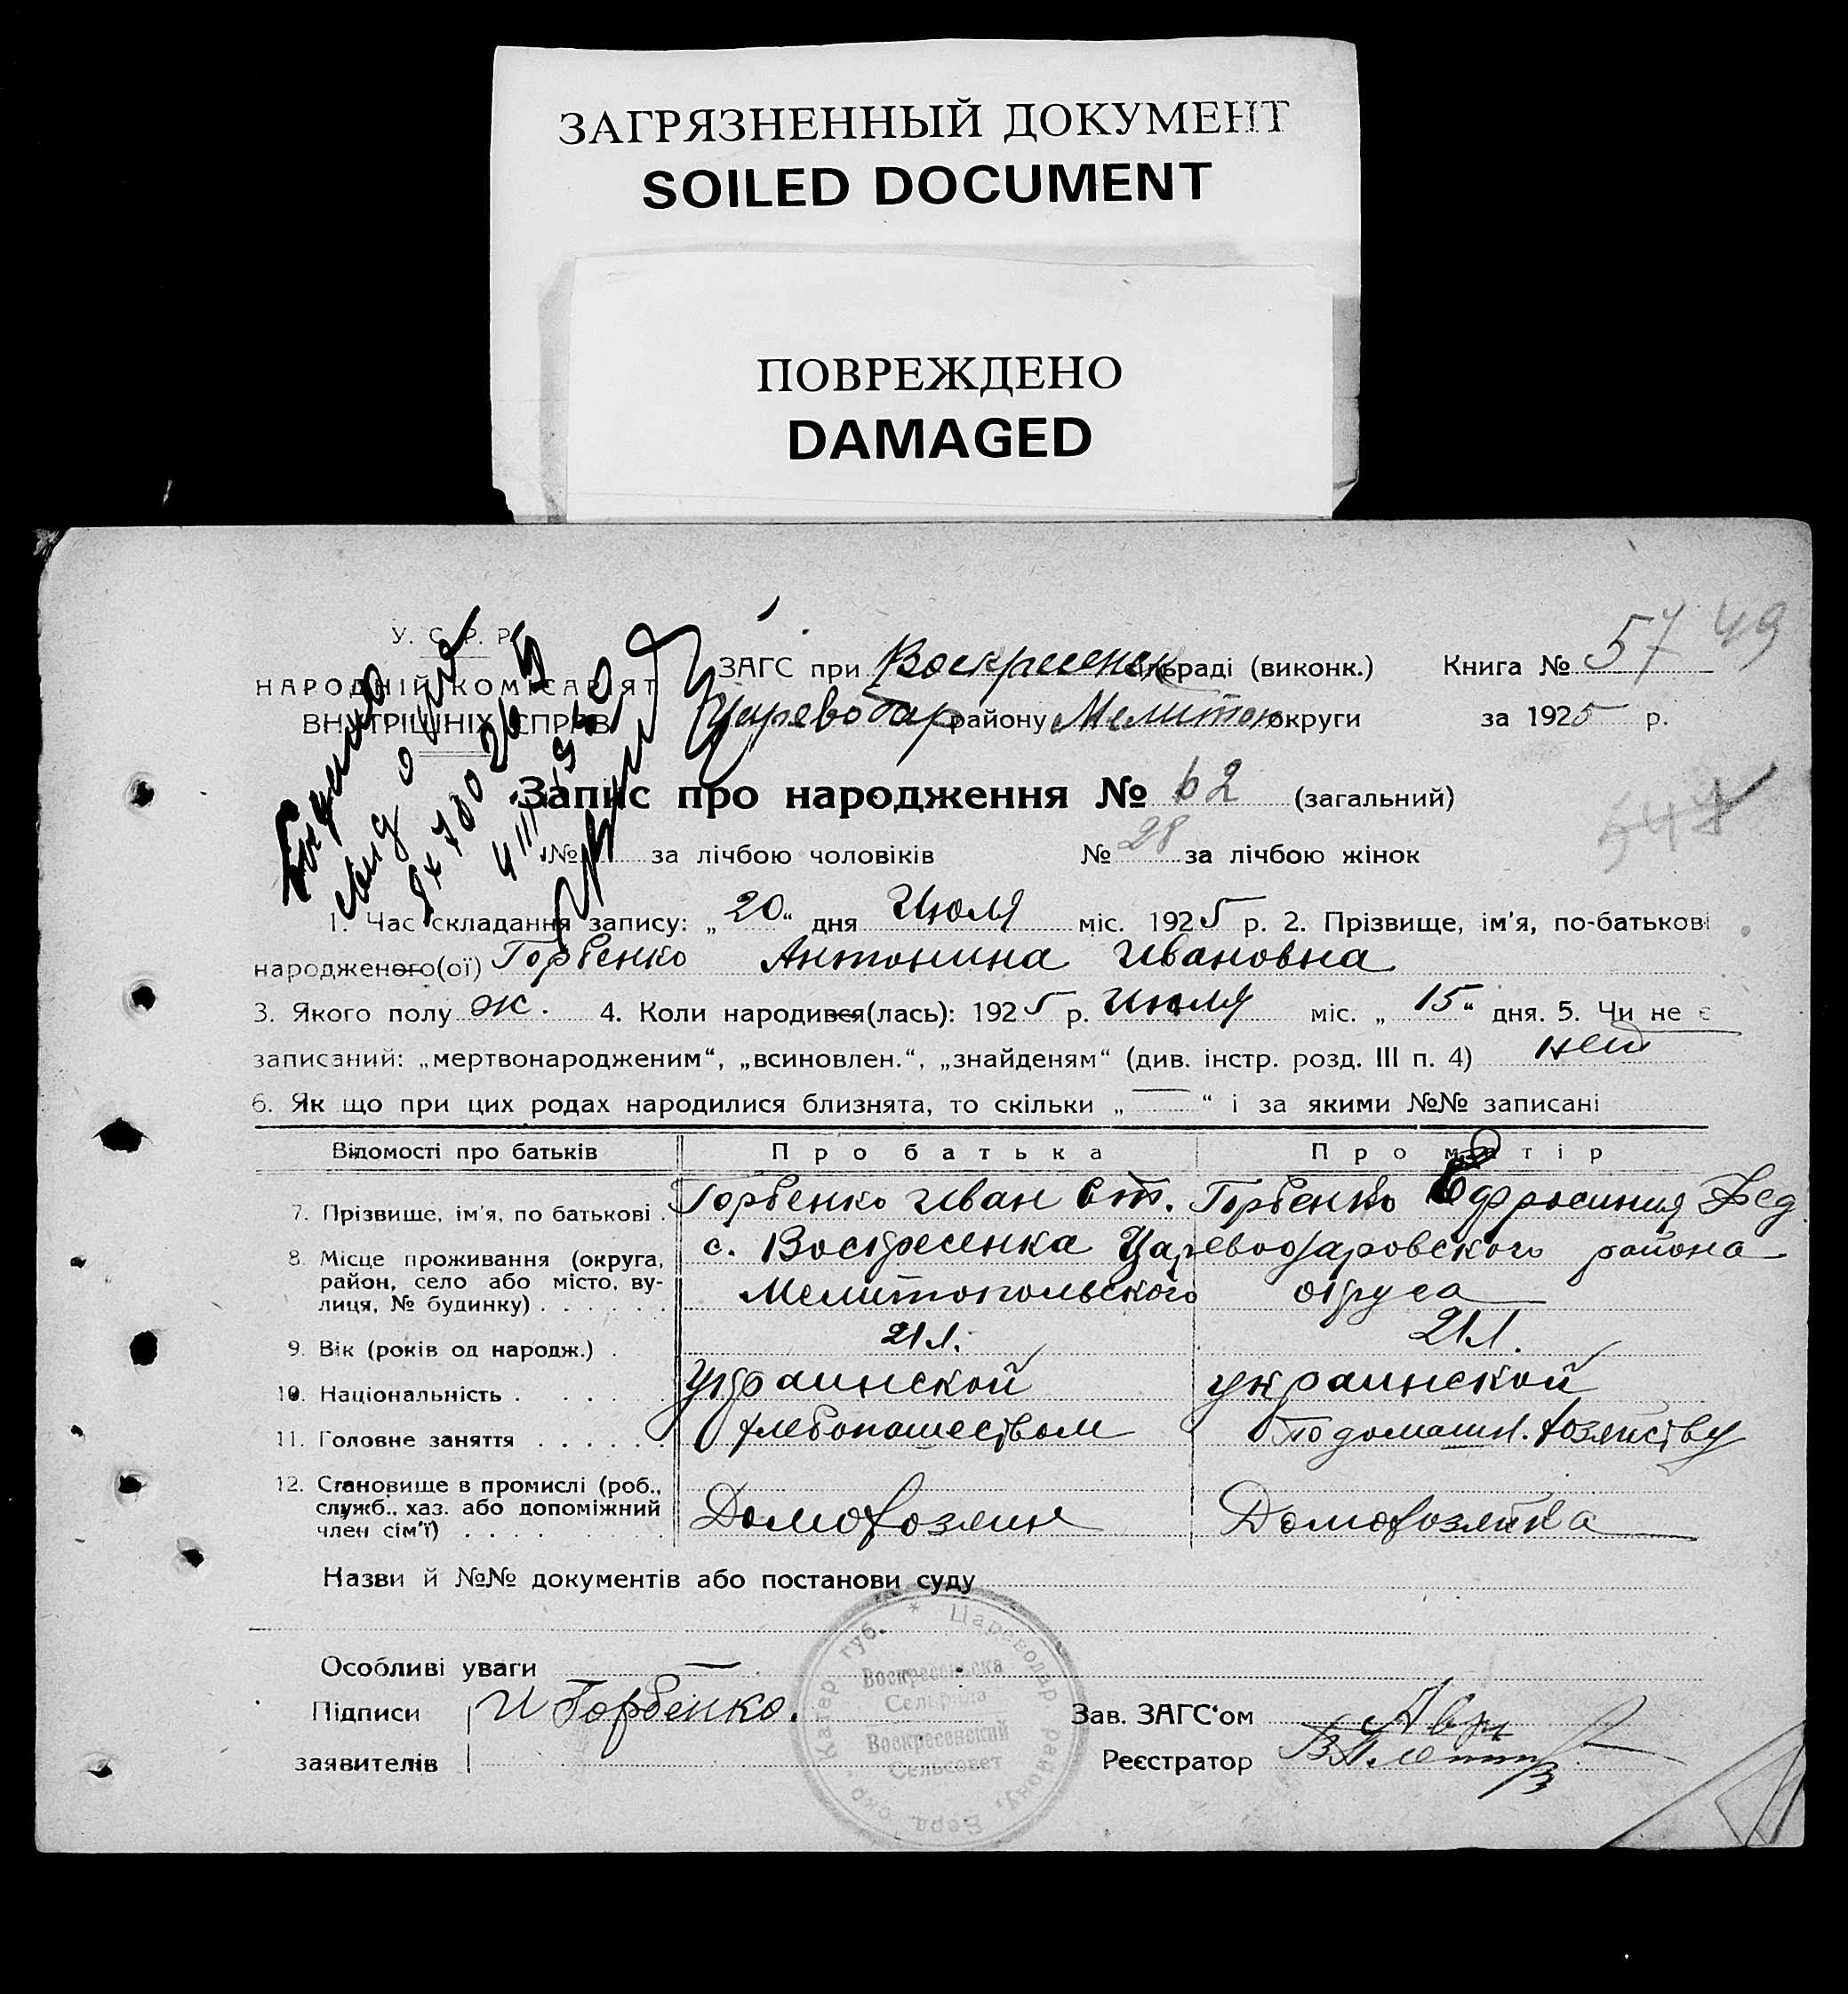 ЗАГРЯЗНЕННЫЙ ДОКУМЕНТ
SOILED DOCUMENT
ПОВРЕЖДЕНО
DAMAGED
49
У. С. Р. Р.
НАРОДНІЙ КОМІСАРІЯТ
ВНУТРІШНІХ СПРАВ
ЗАГС при Воскресенск сільраді (виконк.) Книга № 57
Цареводар району Мелитоп округи за 1925 р.
Запис про народження № 62 (загальний)
№ за лічбою чоловіків № 28 за лічбою жінок
1. Час складання запису: „20“ дня Июля міс. 1925 р. 2. Прізвище, ім'я, по-батькові
народженого(ої) Горбенко Антонина Ивановна
3. Якого полу ж. 4. Коли народився(лась): 1925 р. Июля міс. „15“ дня. 5. Чи не є
записаний: „мертвонародженим“, „всиновлен.“, „знайденям“ (див. інстр. розд. III п. 4) нет
6. Як що при цих родах народилися близнята, то скільки „—“ і за якими №№ записані
Відомості про батьків Про батька Про матір
7. Прізвище, ім'я, по батькові . Горбенко Иван Ст. Горбенко Ефросиния Фед
8. Місце проживання (округа, район, село або місто, вулиця, № будинку) . . . . . . с. Воскресенка Цареводаровского района
Мелитопольского округа
9. Вік (років од народж.) . 21 л. 21 л.
10. Національність . . . . . украинской украинской
11. Головне заняття . . . . . . хлебопашеством по домашн. хозяйству
12. Становище в промислі (роб., служб., хаз. або допоміжний член сім'ї) . . . . Домохозяин Домохозяйка
Назви й №№ документів або постанови суду
Особливі уваги —
Підписи И Горбенко.
заявителів
Зав. ЗАГС'ом
Реєстратор
* Цареводар району, Берд. окр. Катер. губ.
Воскресенська
Сельрада
Воскресенский
Сельсовет